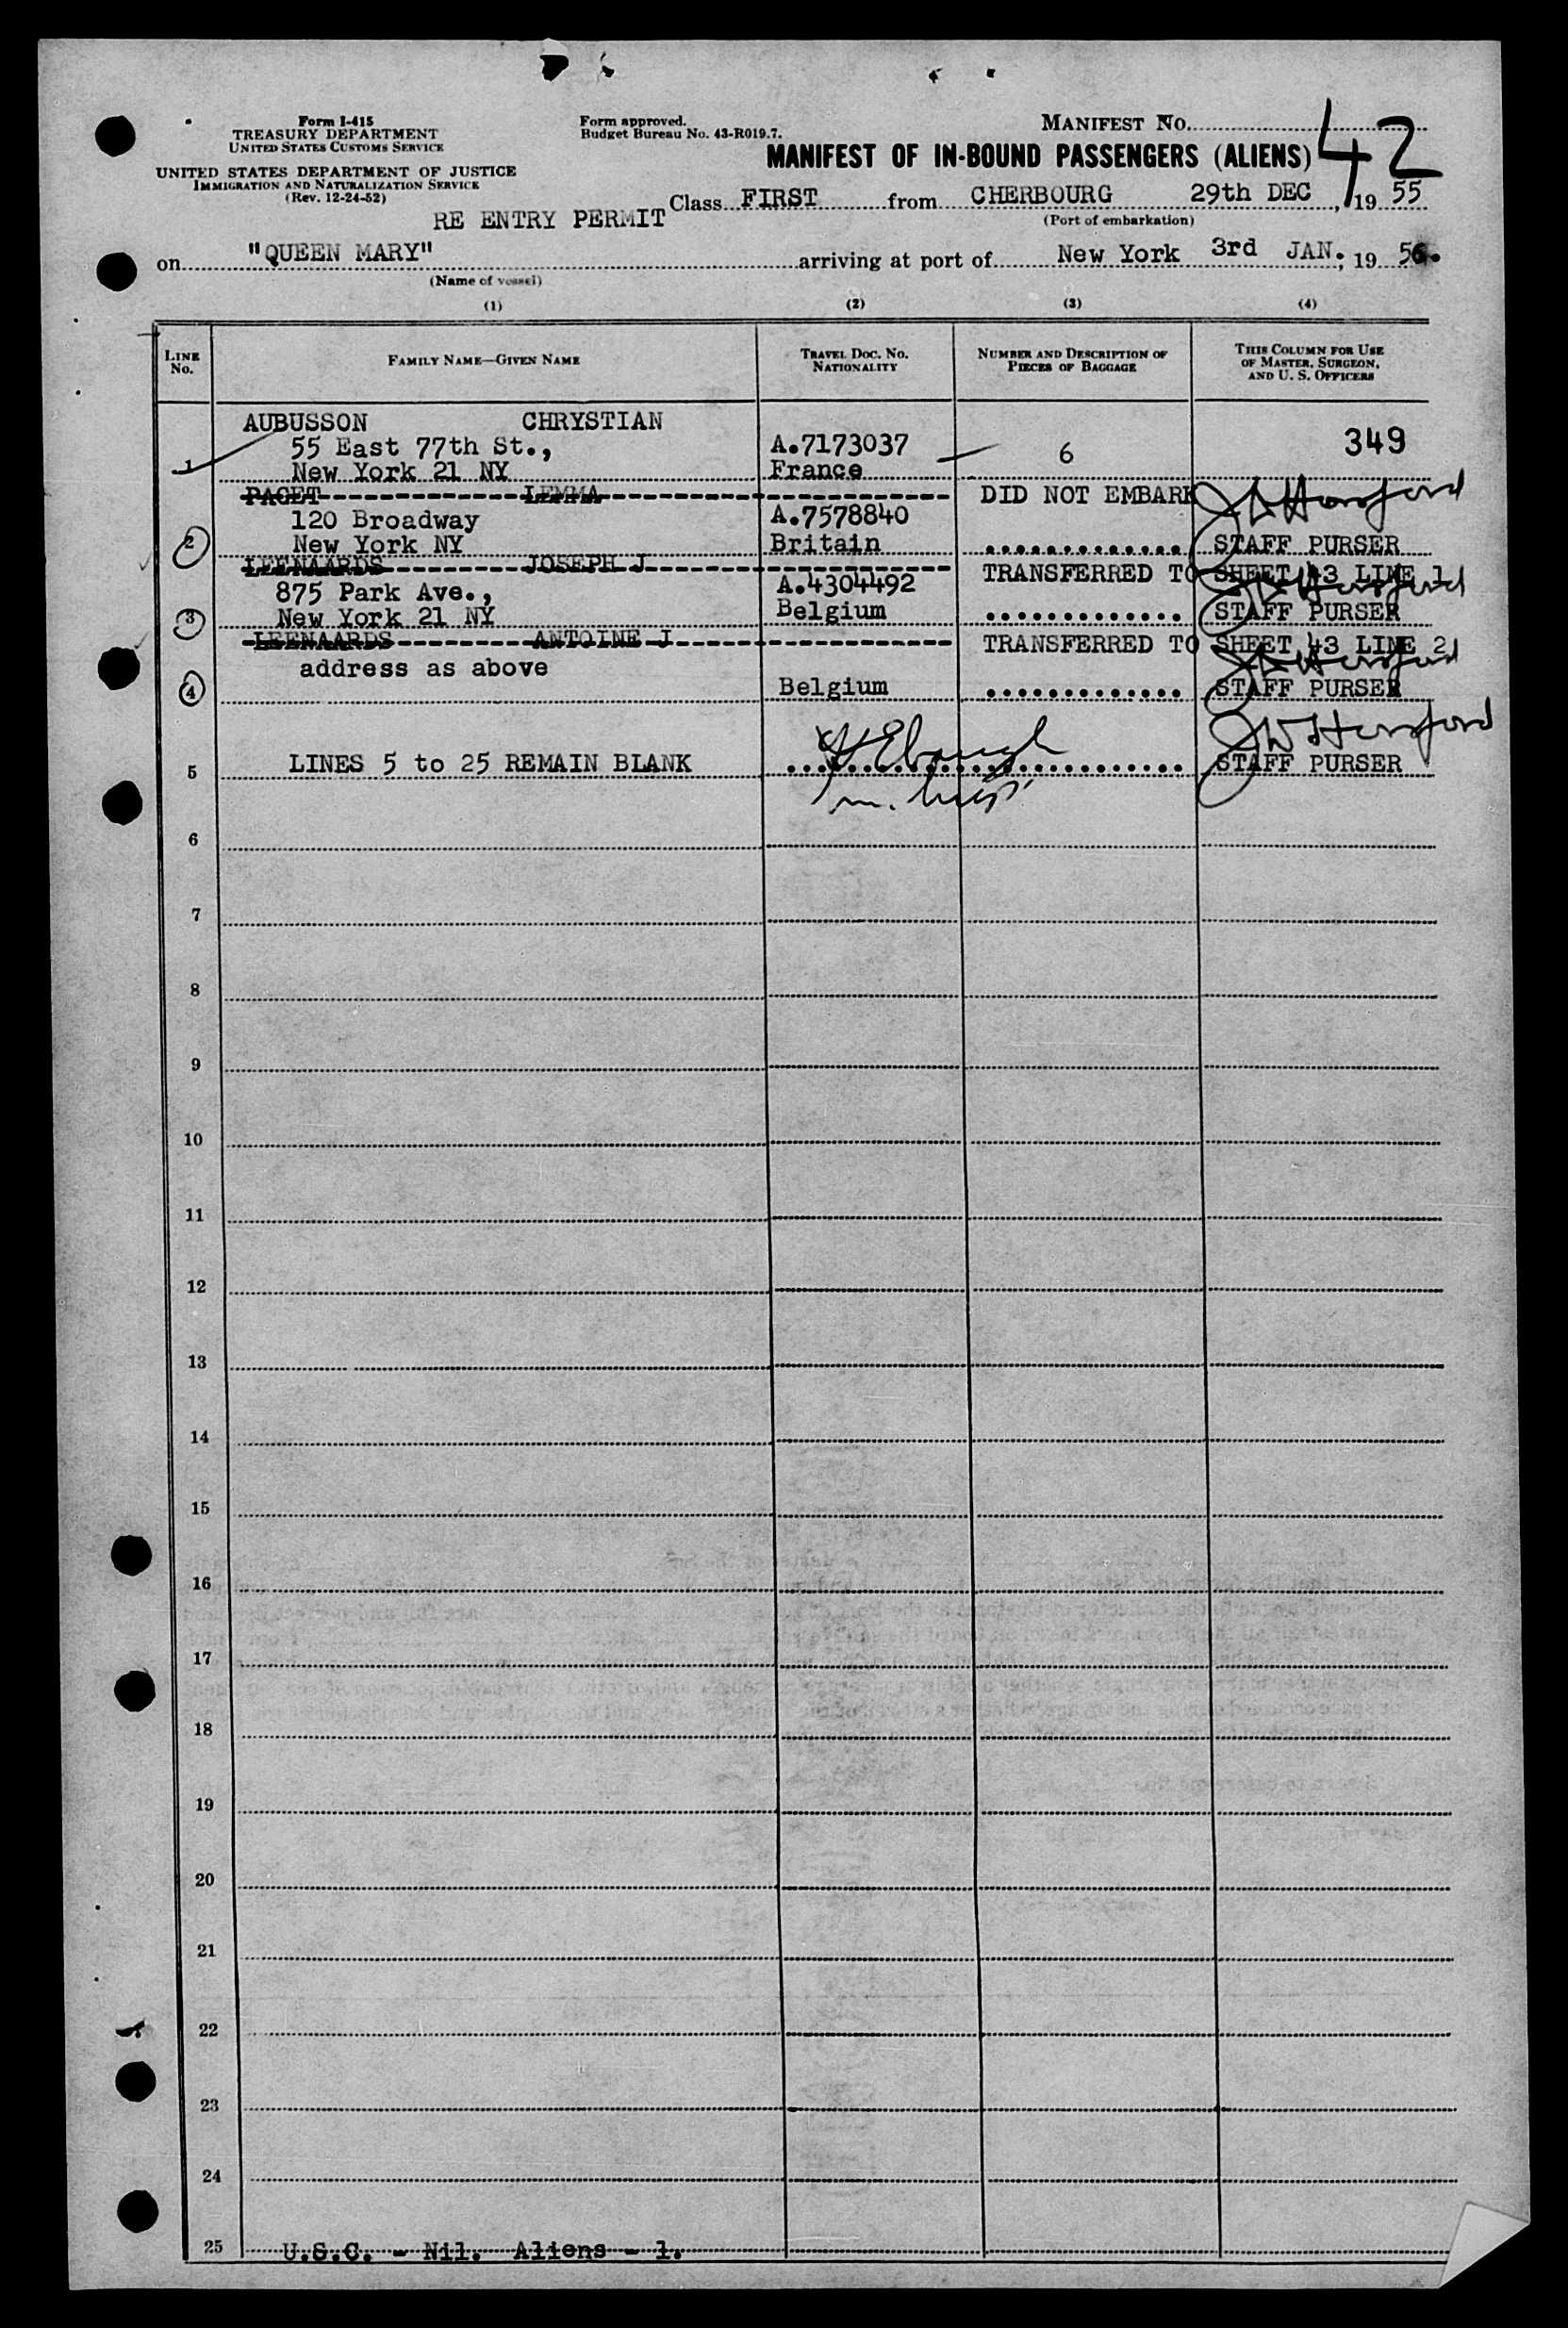 Form I-415
TREASURY DEPARTMENT
UNITED STATES CUSTOMS SERVICE
UNITED STATES DEPARTMENT OF JUSTICE
IMMIGRATION AND NATURALIZATION SERVICE
(Rev. 12-24-52)
Form approved.
Budget Bureau No. 43-R019.7.
MANIFEST NO. 42
MANIFEST OF IN-BOUND PASSENGERS (ALIENS)
RE ENTRY PERMIT Class FIRST from CHERBOURG 29th DEC, 19 55
(Port of embarkation)
on "QUEEN MARY" arriving at port of New York 3rd JAN., 19 56.
(Name of vessel)
(1) (2) (3) (4)
LINE No. FAMILY NAME—GIVEN NAME TRAVEL DOC. NO. NATIONALITY NUMBER AND DESCRIPTION OF PIECES OF BAGGAGE THIS COLUMN FOR USE OF MASTER, SURGEON, AND U. S. OFFICERS
AUBUSSON CHRYSTIAN
55 East 77th St., A.7173037 6 349
1 New York 21 NY France
PAGET LEMMA DID NOT EMBARK
120 Broadway A.7578840
2 New York NY Britain STAFF PURSER
LEENAARDS JOSEPH J TRANSFERRED TO SHEET 43 LINE 1
875 Park Ave., A.4304492
3 New York 21 NY Belgium STAFF PURSER
LEENAARDS ANTOINE J TRANSFERRED TO SHEET 43 LINE 2
address as above
4 Belgium STAFF PURSER
5 LINES 5 to 25 REMAIN BLANK STAFF PURSER
6
7
8
9
10
11
12
13
14
15
16
17
18
19
20
21
22
23
24
25 U.S.C. - Nil. Aliens - 1.